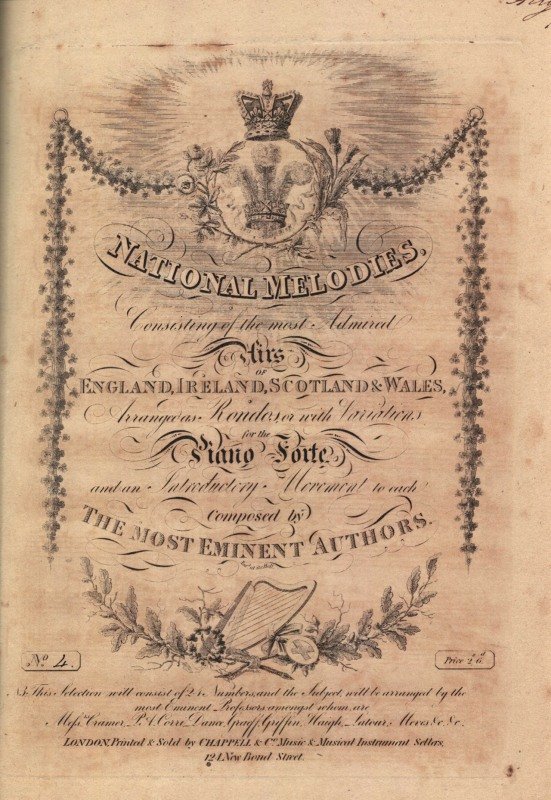 NATIONAL MELODIES.
Consisting of the most Admired
Airs
OF
ENGLAND, IRELAND, SCOTLAND & WALES,
Arranged as Rondos, or with Variations
for the
Piano Forte
and an Introductory Movement to each
Composed by
THE MOST EMINENT AUTHORS.
No. 4.
Price 2/6
NB. This Selection will consist of 24 Numbers, and the Subjects will be arranged by the
most Eminent Professors, amongst whom are
Messrs. Cramer, P. A. Corri, Dance, Graeff, Griffin, Haigh, Latour, Moves &c. &c.
LONDON, Printed & Sold by CHAPPELL & Co. Music & Musical Instrument Sellers,
124 New Bond Street.